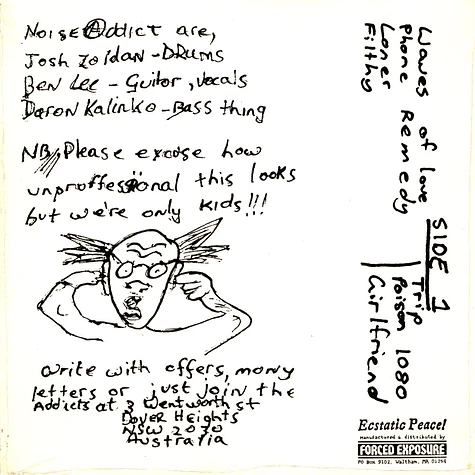 NOISE Addict are,
Josh Zoldan - DRums
Ben Lee - Guitor, vocals
Daron Kalinko - Bass thing
NB, Please excose how
unproffessional this looks
but we're only kids!!!
write with offers, mony
letters or just join the
Addicts at 3 Wentworth st
Dover Heights
NSW 2030
Australia
SIDE 1
Waves of love
Phone Remedy
Loner
Filthy
Trip
Poison 1080
Girlfriend
Ecstatic Peace!
Manufactured & distributed by
FORCED EXPOSURE
PO Box 9102, Waltham, MA 02254